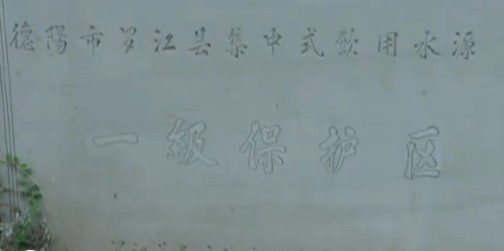 德陽市罗江县集中式飲用水源
一級保护区